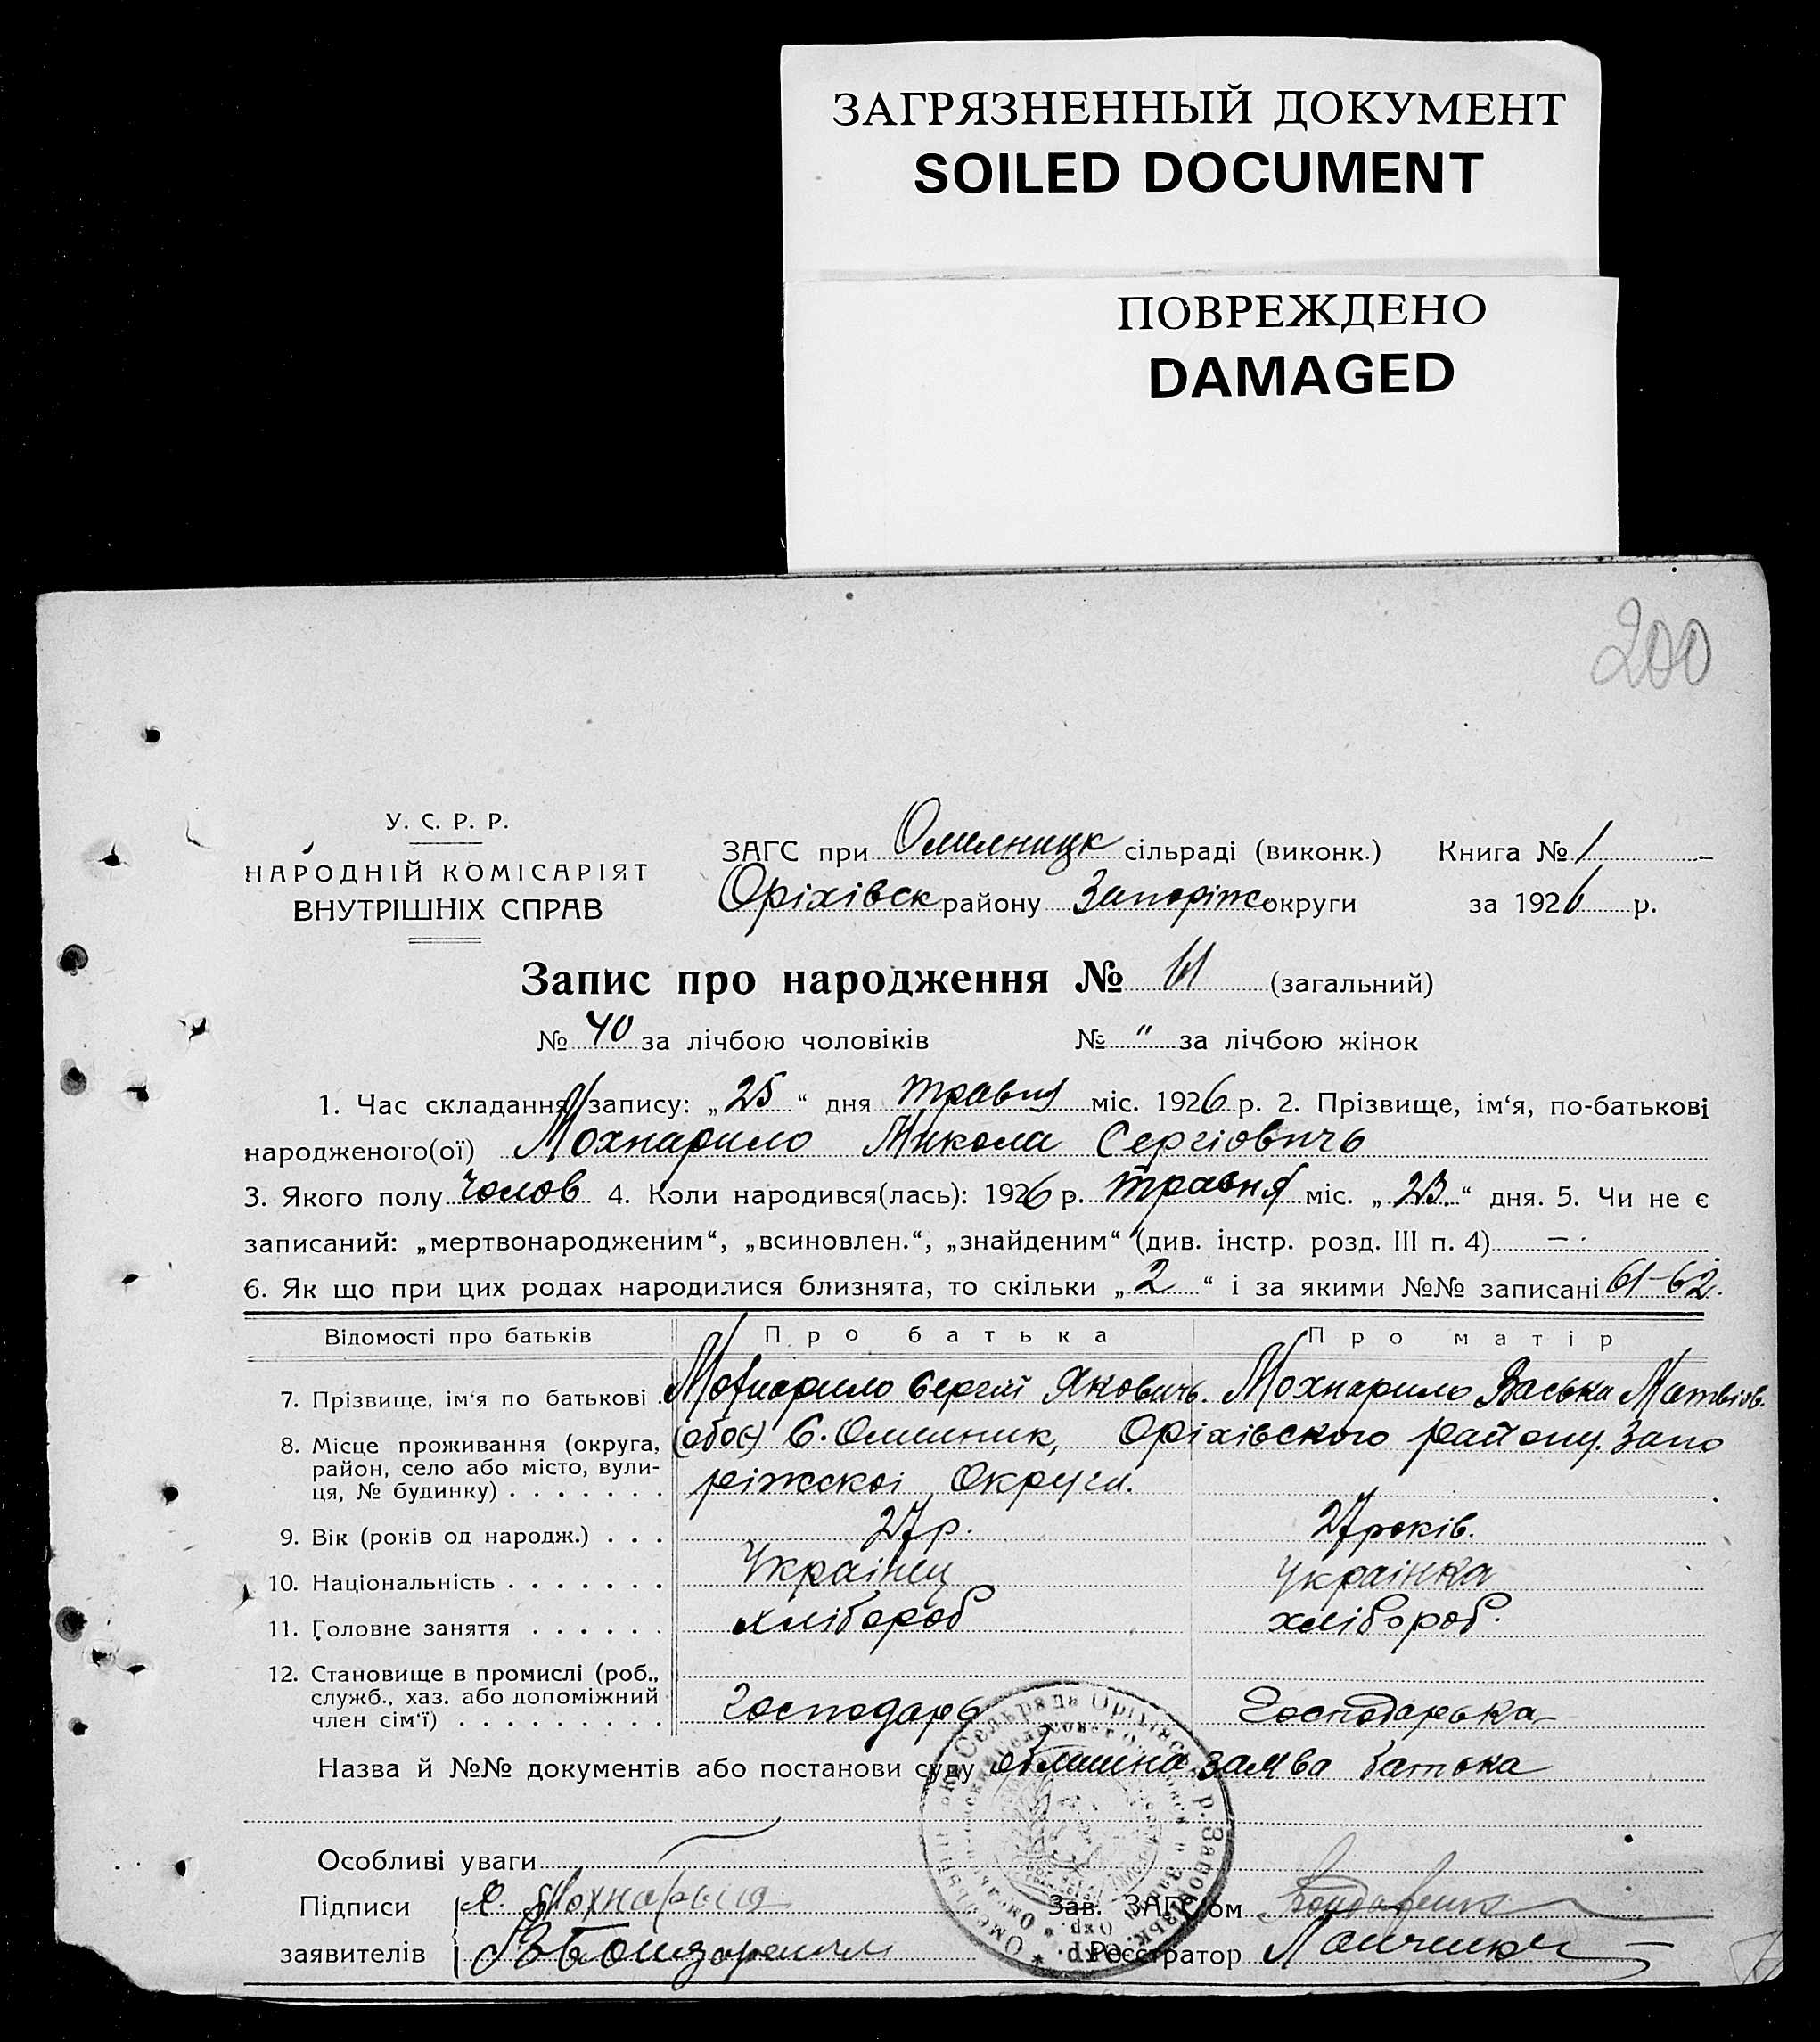 ЗАГРЯЗНЕННЫЙ ДОКУМЕНТ
SOILED DOCUMENT
ПОВРЕЖДЕНО
DAMAGED
200
У. С. Р. Р.
НАРОДНІЙ КОМІСАРІЯТ
ВНУТРІШНІХ СПРАВ
ЗАГС при Омелницк сільраді (виконк.) Книга № 1
Оріхівск району Запоріж округи за 1926 р.
Запис про народження № 61 (загальний)
№ 40 за лічбою чоловіків № " за лічбою жінок
1. Час складання запису: „25“ дня травня міс. 1926 р. 2. Прізвище, ім‘я, по-батькові
народженого(ої) Мохнарило Микола Сергіовичь
3. Якого полу чолов 4. Коли народився(лась): 1926 р. травня міс. „23.“ дня. 5. Чи не є
записаний: „мертвонародженим“, „всиновлен.“, „знайденим“ (див. інстр. розд. III п. 4) —
6. Як що при цих родах народилися близнята, то скільки „2“ і за якими №№ записані 61-62.
Відомості про батьків Про батька Про матір
7. Прізвище, ім‘я по батькові Мохнарило Сергій Яковичь. Мохнарило Васька Матвіів.
8. Місце проживання (округа, район, село або місто, вулиця, № будинку) (обоє) С. Омелник, Оріхівского району. Запо
ріжскоі Округи.
9. Вік (років од народж.) 27 р. 27 років.
10. Національність Украінец Украінка
11. Головне заняття хлібороб хлібороб.
12. Становище в промислі (роб., служб., хаз. або допоміжний член сім‘ї) Господарь Господарька
Назва й №№ документів або постанови суду заява батька
Особливі уваги
Підписи Зав. ЗАГС‘ом
заявителів Реєстратор